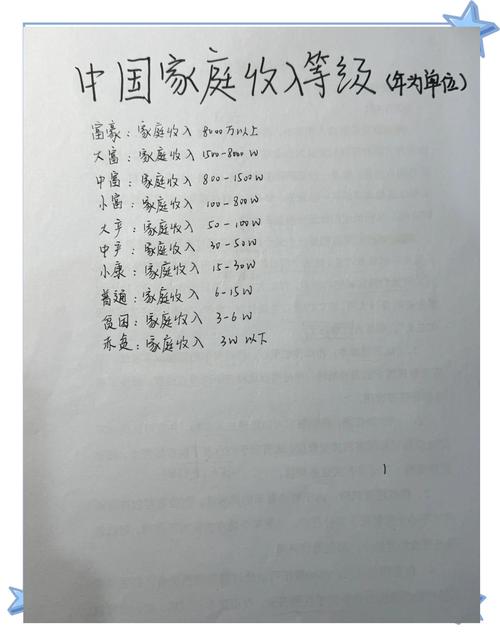 中国家庭收入等级(年为单位)
富豪：家庭收入 8000万以上
大富：家庭收入 1500-8000W
中富：家庭收入 800-1500W
小富：家庭收入 100-800W
大产：家庭收入 50-100W
中产：家庭收入 30-50W
小康：家庭收入 15-30W
普通：家庭收入 6-15W
贫困：家庭收入 3-6W
赤贫：家庭收入 3W以下